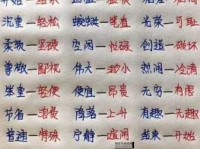 沉重—轻松 蜿蜒—笔直 光荣—可耻
柔软—坚硬 空闲—忙碌 创造—破坏
尊敬—鄙视 伟大—渺小 热闹—冷清
笨重—轻便 便宜—昂贵 无穷—有限
节省—浪费 降落—上升 有趣—无趣
普通—特殊 宁静—喧闹 结束—开始